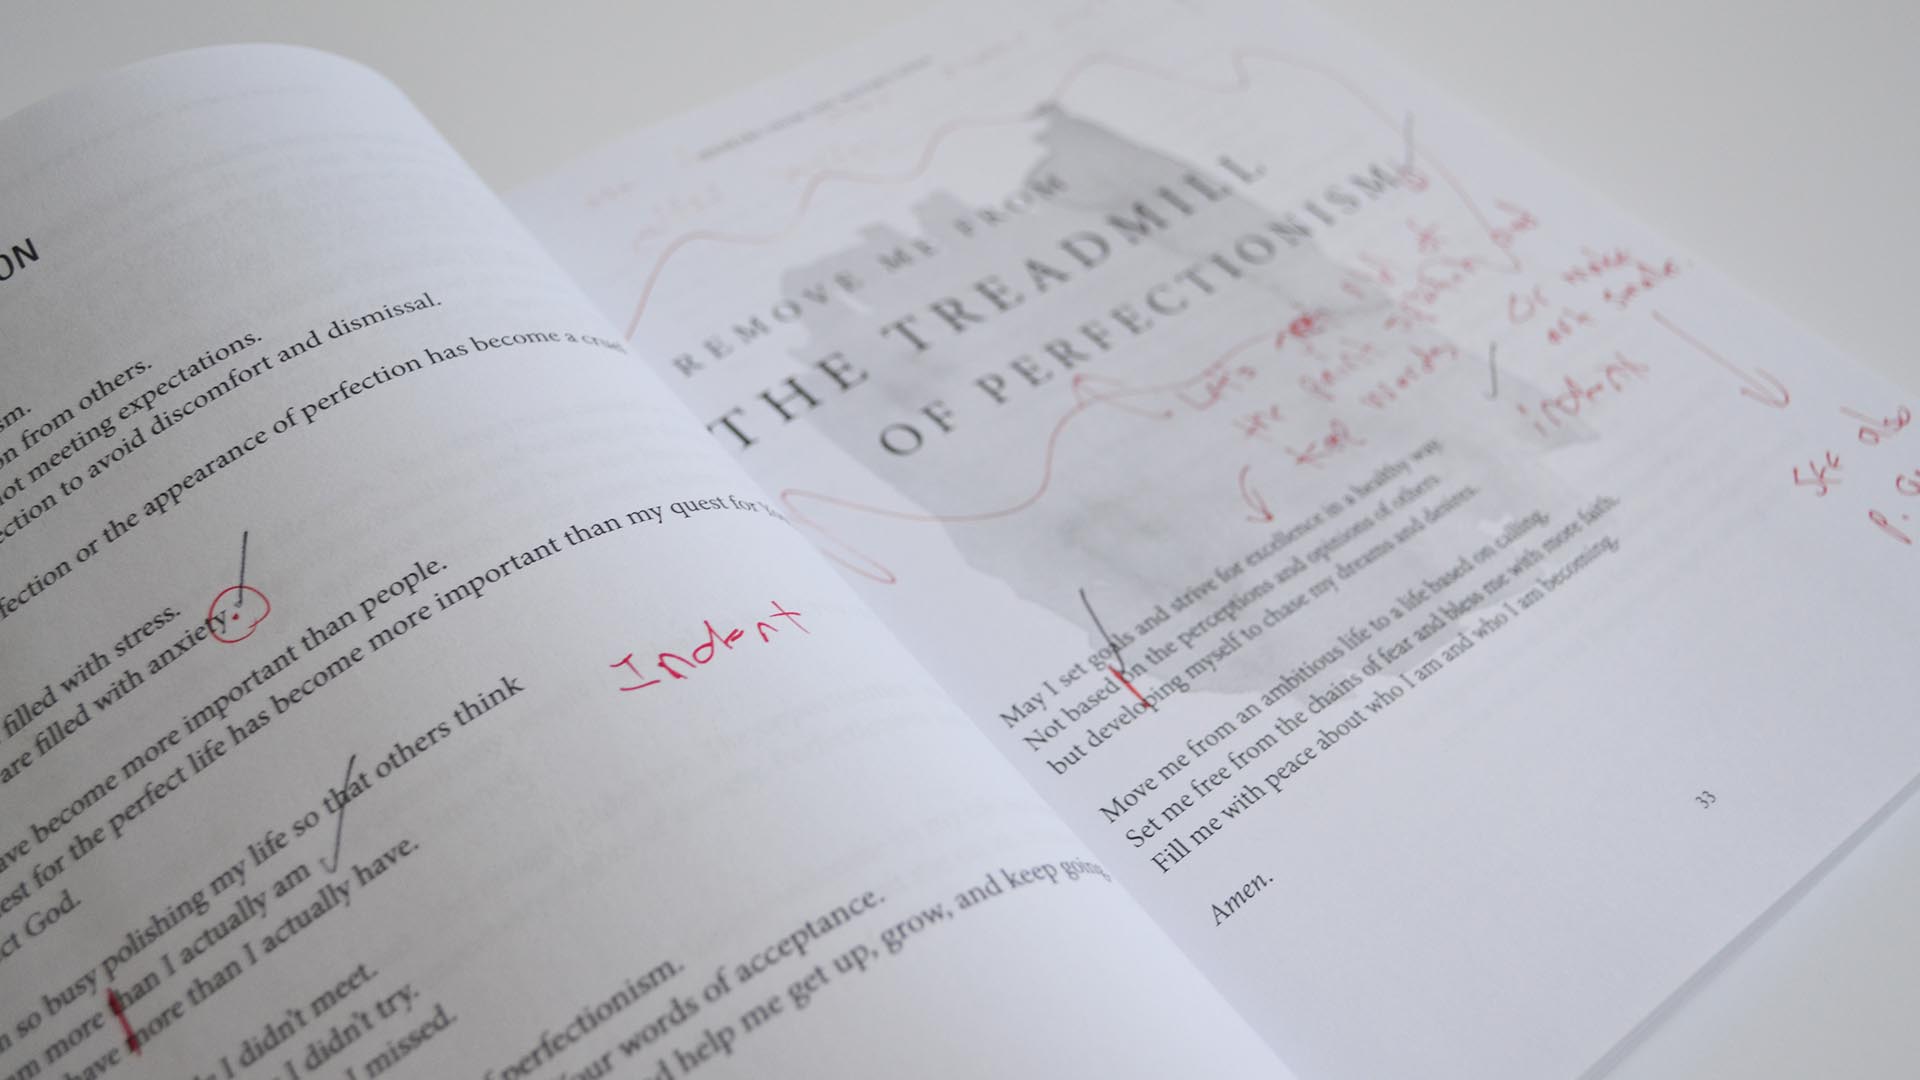 ON
sm.
n from others.
ot meeting expectations.
ction to avoid discomfort and dismissal.
fection or the appearance of perfection has become a
filled with stress.
are filled with anxiety.
ave become more important than people.
est for the perfect life has become more important than my quest for
ct God.
n so busy polishing my life so that others think
m more than I actually am
have more than I actually have.
I didn't meet.
I didn't try.
I missed.
perfectionism.
our words of acceptance.
d help me get up, grow, and keep going
Indent
REMOVE ME FROM
THE TREADMILL
OF PERFECTIONISM
Let's
the paint
indent
See also
p.
May I set goals and strive for excellence in a healthy way.
Not based on the perceptions and opinions of others
but developing myself to chase my dreams and desires.
Move me from an ambitious life to a life based on calling.
Set me free from the chains of fear and bless me with more faith.
Fill me with peace about who I am and who I am becoming.
Amen.
33